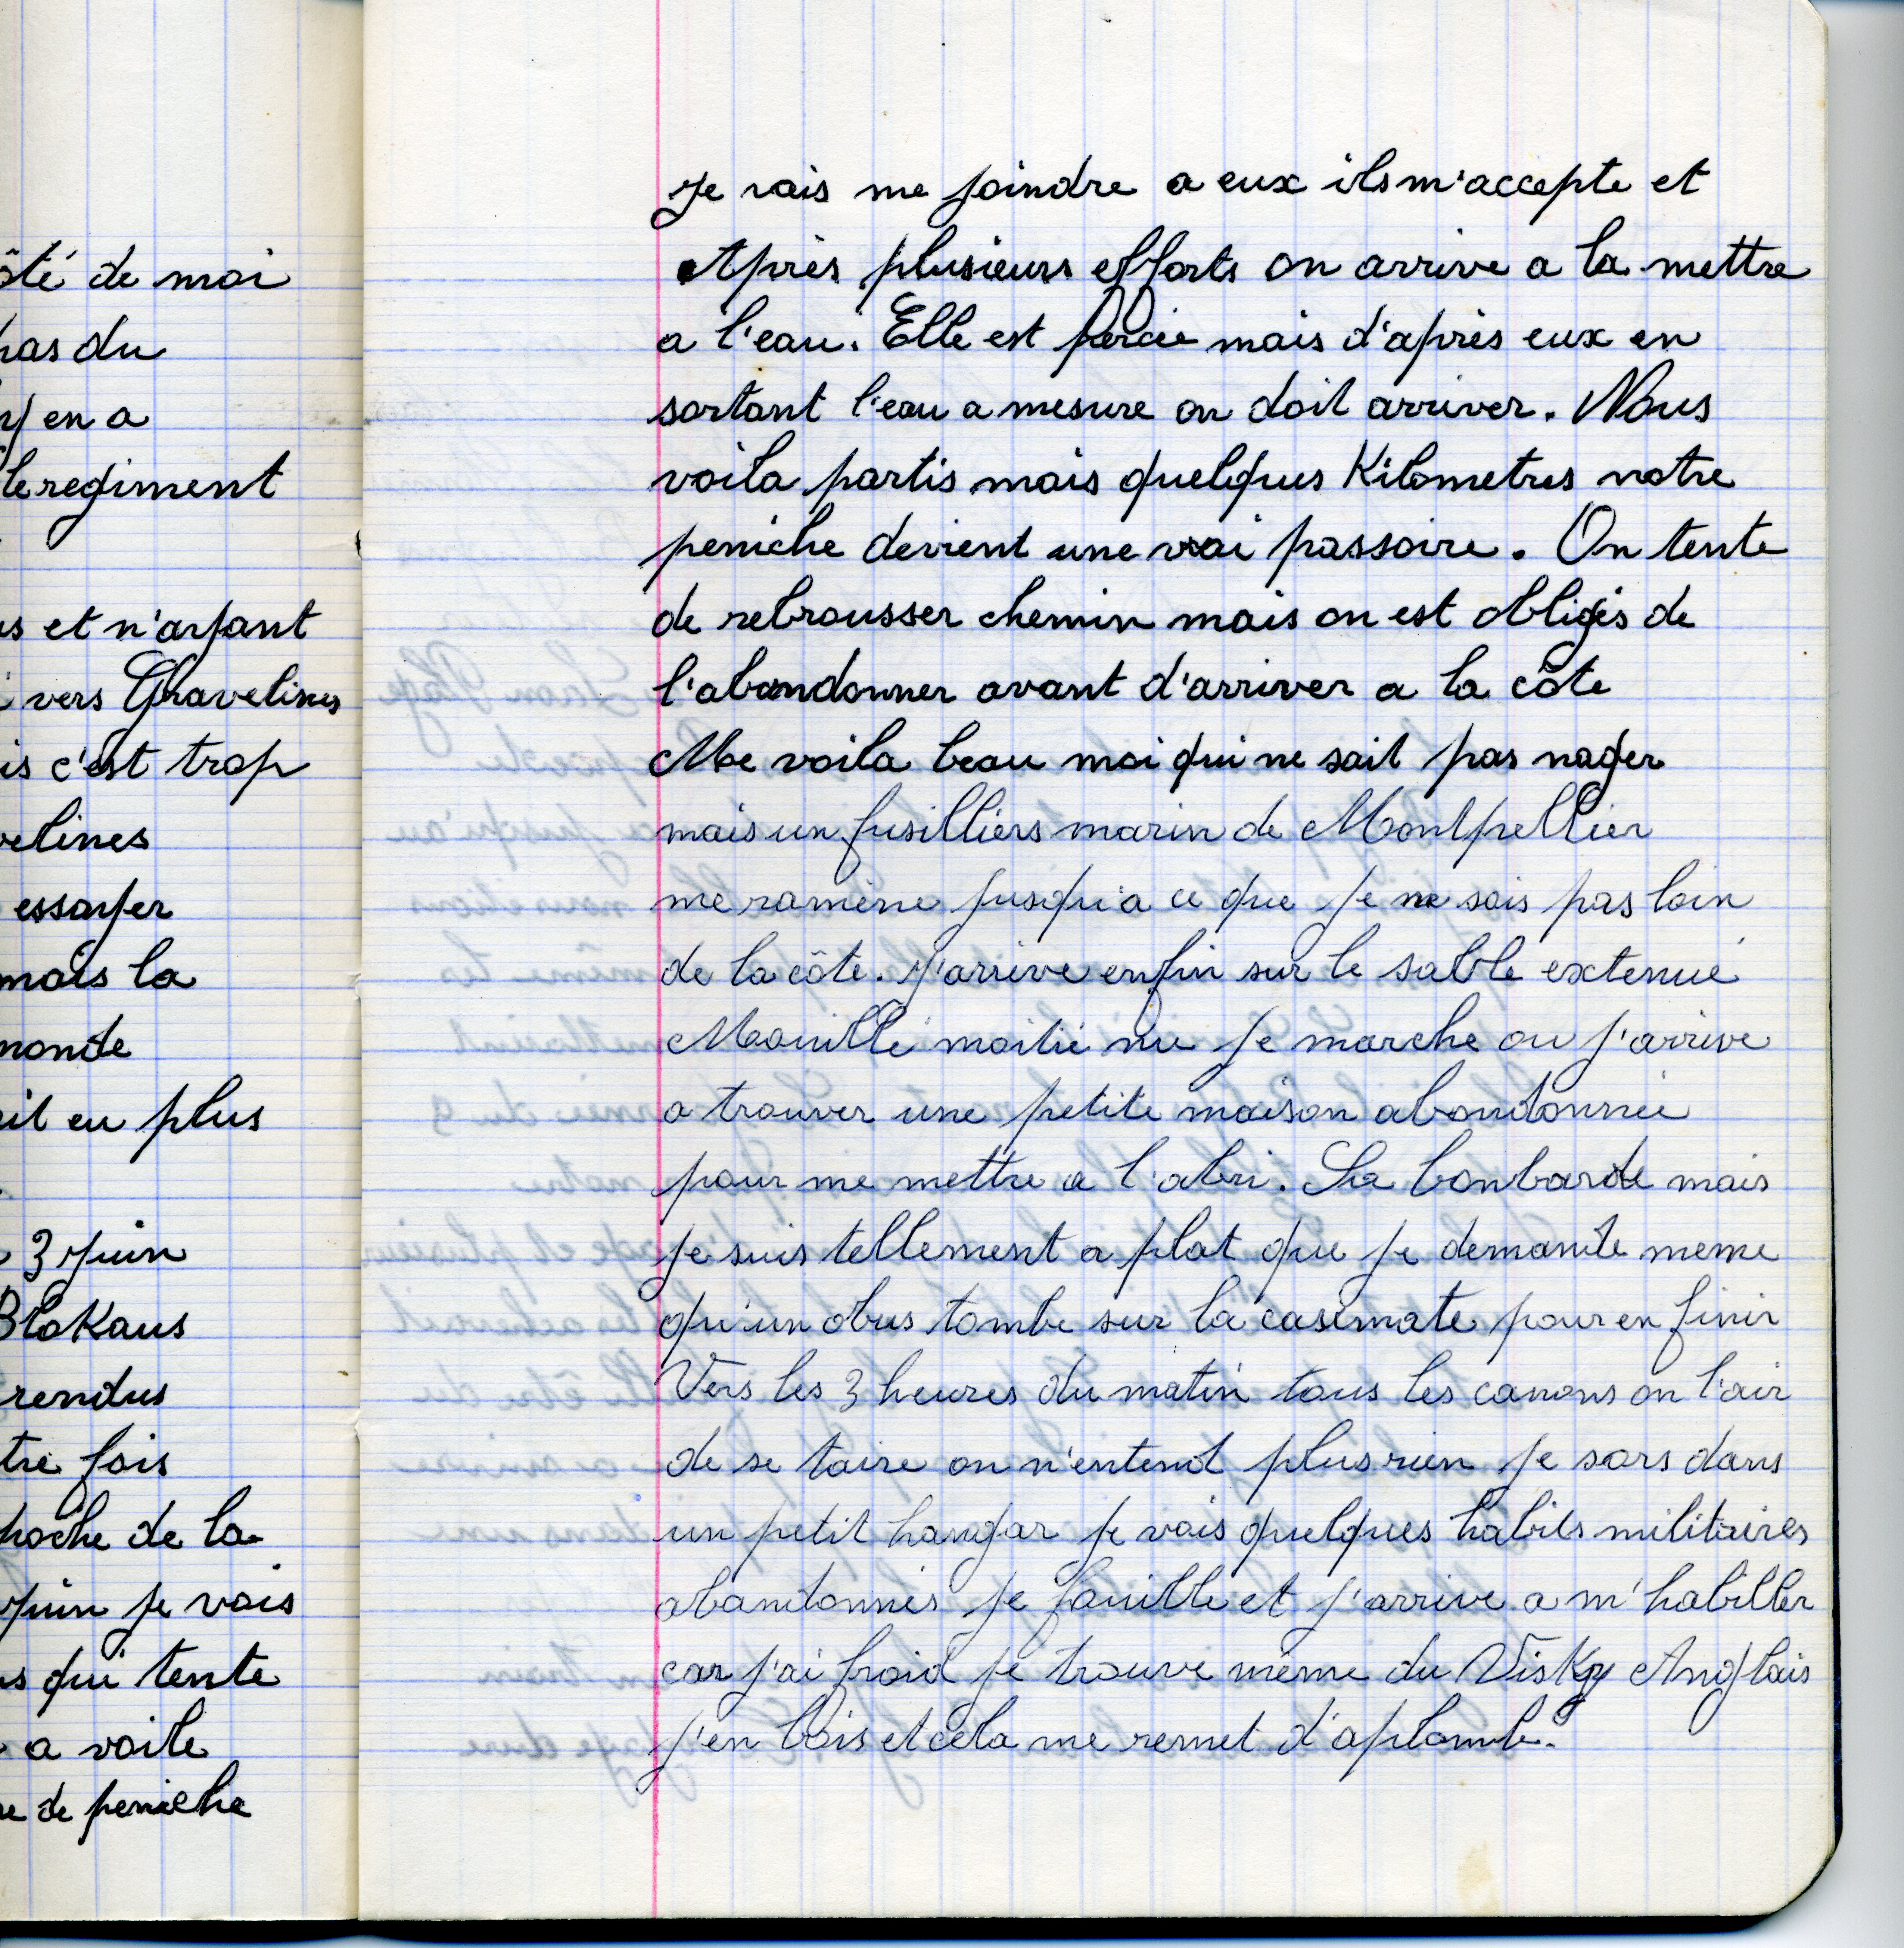 ôté de moi
pas du
y en a
le regiment
et n'ayant
vers Gravelines
is c'est trop
velines
essayer
mais la
monde
ait eu plus
3 juin
Blokaus
rendus
tre fois
poche de la
juin je vois
s qui tente
a voile
de peniche
Je vais me joindre a eux ils m'accepte et
Après plusieurs efforts on arrive a la mettre
a l'eau. Elle est percée mais d'après eux en
sortant l'eau a mesure on doit arriver. Nous
voila partis mais quelques Kilometres notre
peniche devient une vrai passoire. On tente
de rebrousser chemin mais on est obligés de
l'abandonner avant d'arriver a la côte
Me voila beau moi qui ne sait pas nager
mais un fusilliers marin de Montpellier
me ramène jusqu'a ce que je ne sois pas loin
de la côte. J'arrive enfin sur le sable extenué
Mouillé moitié nu je marche ou j'arrive
a trouver une petite maison abondonnée
pour me mettre a l'abri. Sa bonbarde mais
je suis tellement a plat que je demande meme
qu'un obus tombe sur la casemate pour en finir
Vers les 3 heures du matin tous les canons on l'air
de se taire on n'entend plus rien je sors dans
un petit hangar je vois quelques habits militaires
abandonnés je fouille et j'arrive a m'habiller
car j'ai froid je trouve même du Visky Anglais
j'en bois et cela me remet d'aplomb.